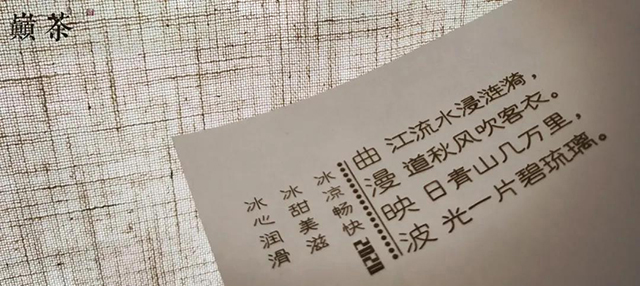 巅茶
曲江流水浸涟漪，
漫道秋风吹客衣。
映日青山几万里，
波光一片碧琉璃。
2020
冰凉畅快
冰甜美滋
冰心润滑